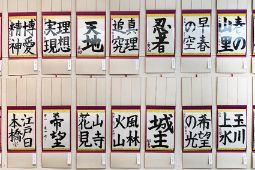 春の
山里
早春
の空
忍者
真理
追究
天地
理想
実現
博愛
精神
玉川
上水
希望
の光
城主
風林
火山
山寺
花見
希望
江戸日
本橋